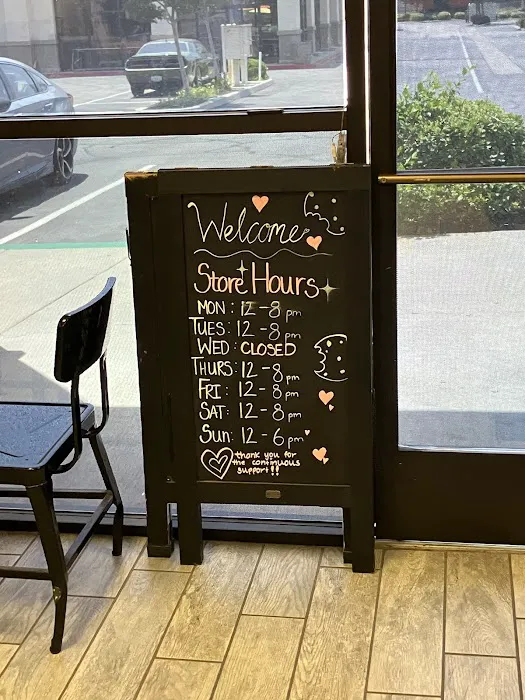 Welcome
Store Hours
MON: 12-8 pm
TUES: 12-8 pm
WED: CLOSED
THURS: 12-8 pm
FRI: 12-8 pm
SAT: 12-8 pm
Sun: 12-6 pm
thank you for
the continuous
support!!